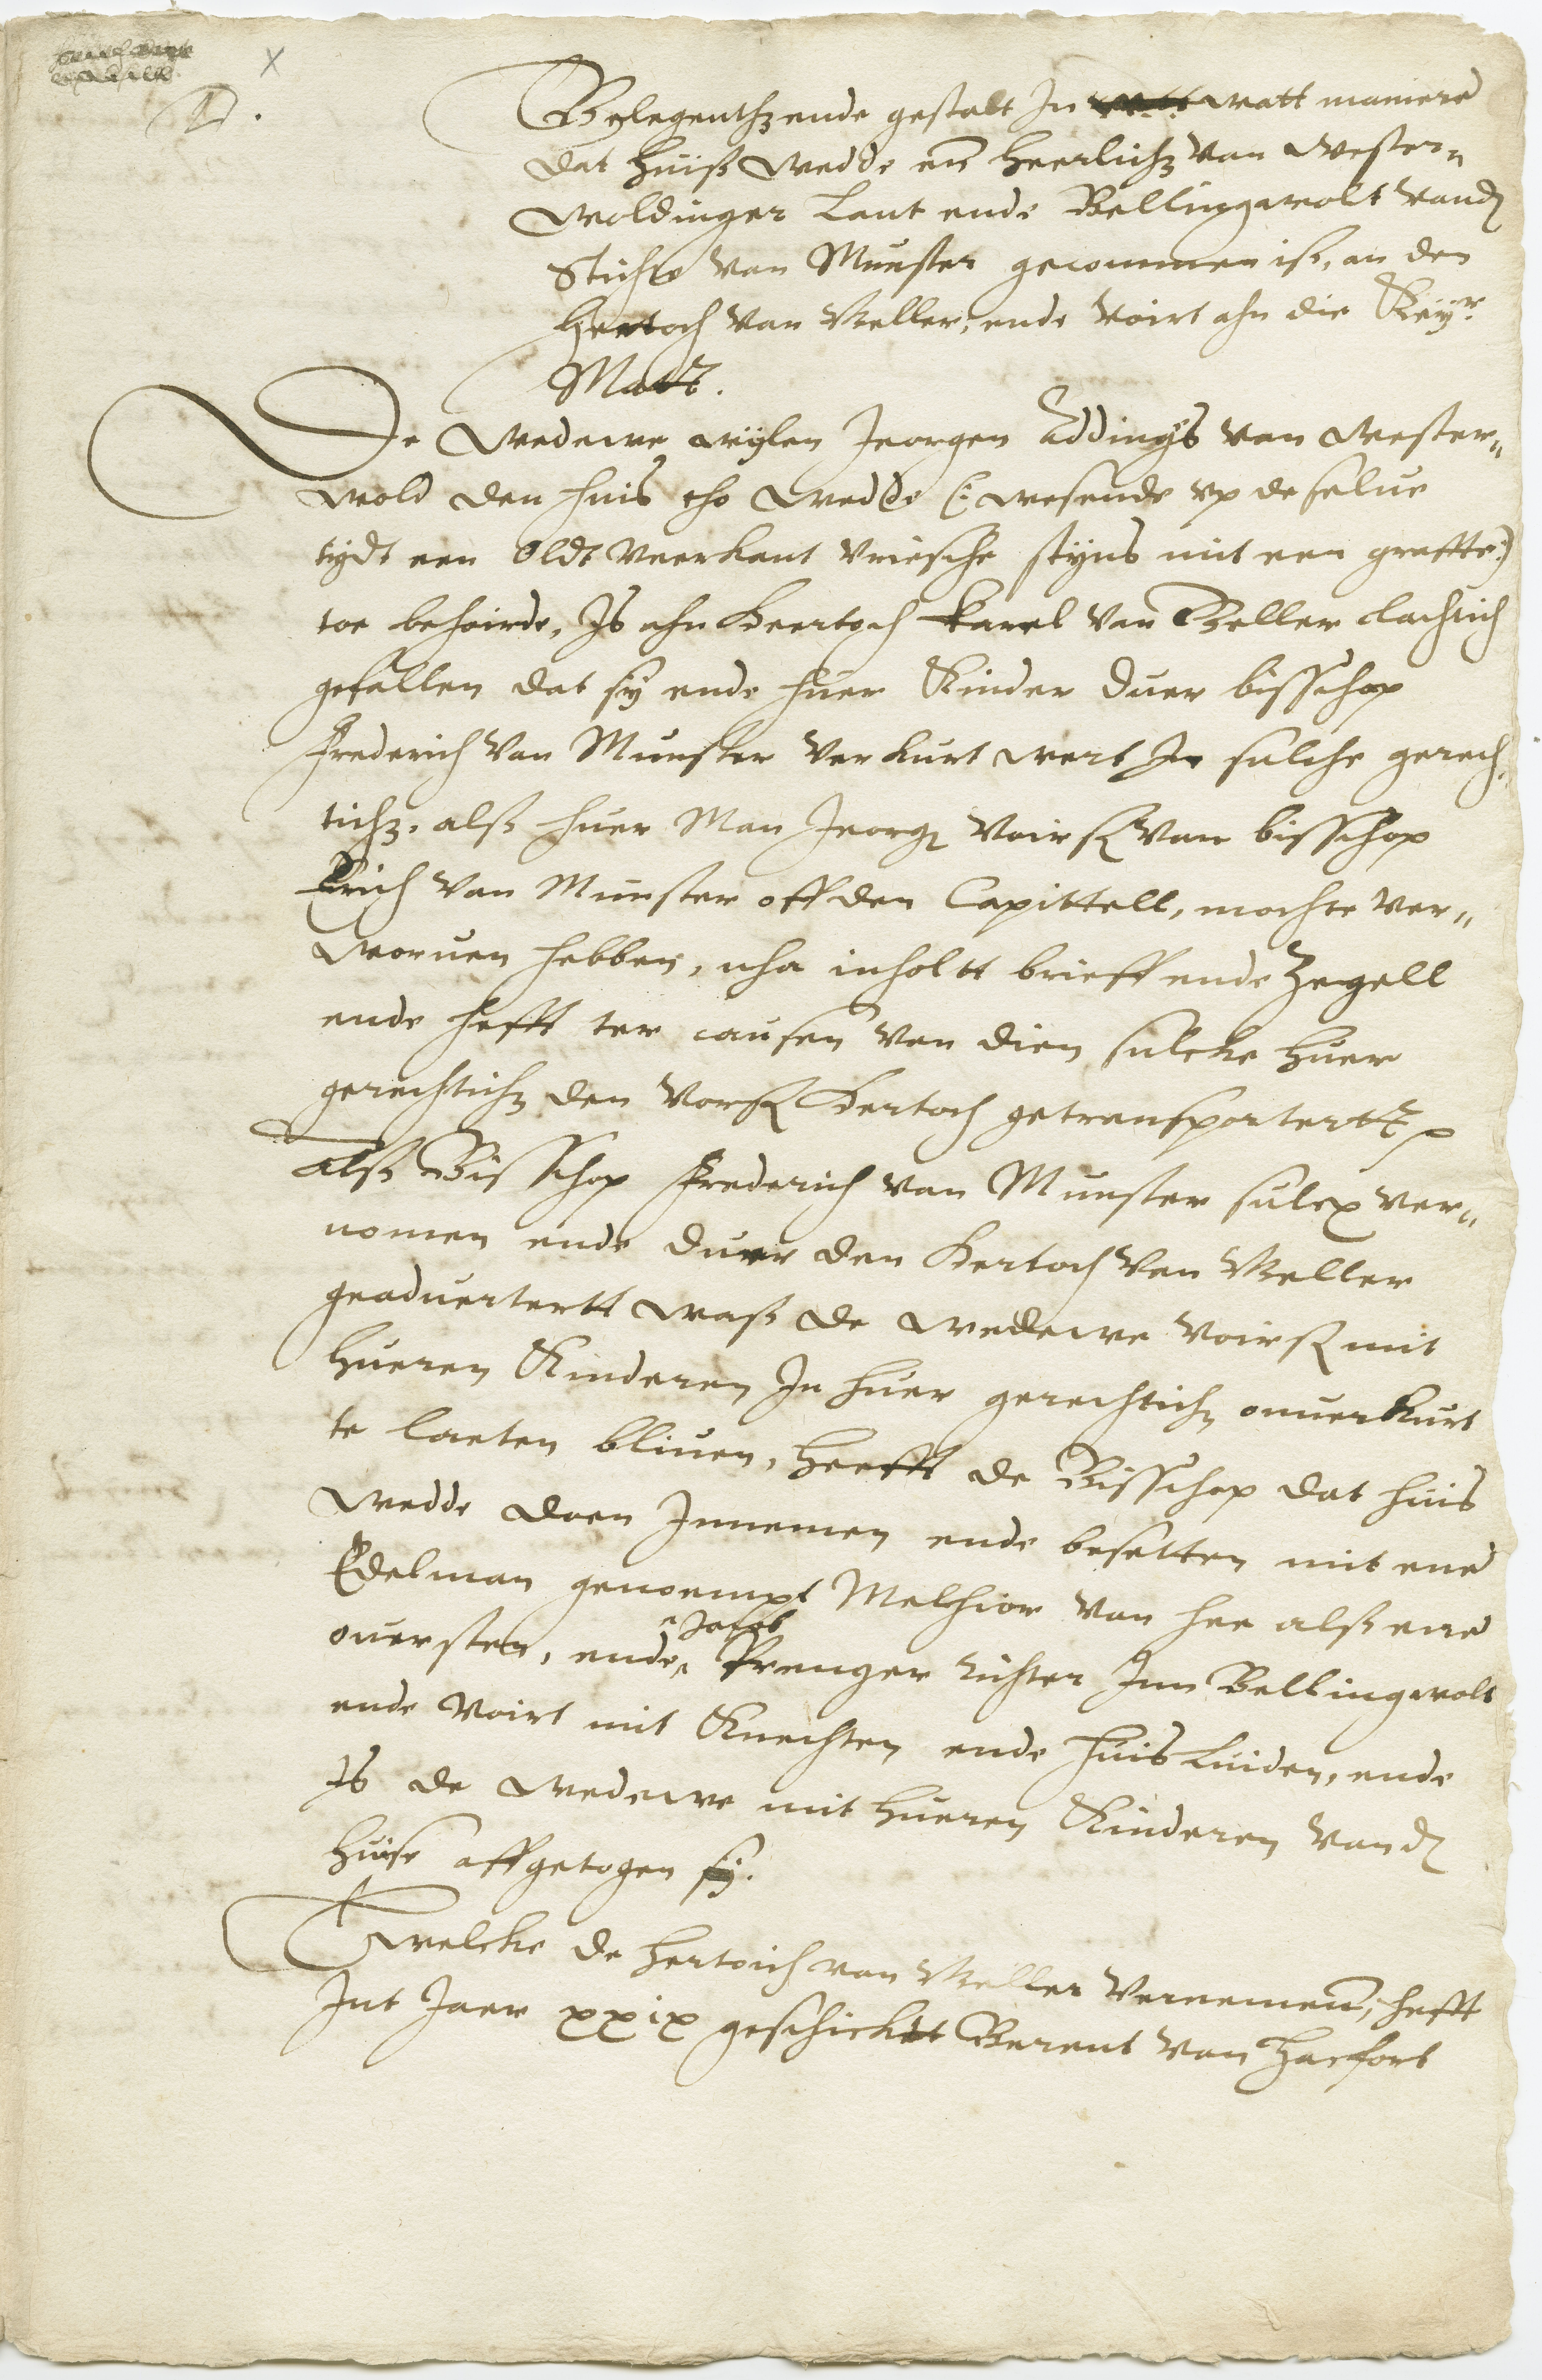 D.
Gelegenthz ende gestalt In watt maniere
dat Huiß Wedde en̄ Heerlichz van Wester„
woldinger Lant ende Bellingewolt vand
Sticht van Munster gecommen is, an den
Hertoch van Geller, ende voirt ahn die Keyr
Matt.
De Wedewe wijlen Jeorgen Addings van Wester„
wold den huis tho Wedde (: wesende vp deselue
tydt een Oldt veerkant vriesche styns mit een graffte:)
toe behoirde, Is ahn Heertoch Karel van Geller clachtich
gefallen dat sy ende huer Kinder duer bisschop
Frederich van Munster verkurt wert In sulche gerech„
tichz, alß huer Man Jeorg voirß van bisschop
Erich van Munster off den Capittell, mochte ver„
woruen hebben, nha inholtt brieff ende Zegell
ende hefft ter causen van dien sulcke huer
gerechtichz den vorß Hertoch getransportertt
Alß Bisschop Frederich van Munster sulcx ver„
nomen ende duer den Hertoch van Geller
geaduertertt waß de wedewe voirß mit
hueren Kinderen In huer gerechtichz onuerkurt
te laeten bliuen, Heefft de Bisschop dat huis
Wedde doen Innemen ende besetten mit ene
Edelman genoempt Melchior van hee alß ene
ouersten, ende Jacob Prenger richter Inn Bellingwolt
ende voirt mit Knechten ende huisluiden, ende
Is de wedewe mit hueren Kinderen vand
huise affgetogen sy.
Twelcke de hertoich van Geller vernemen, hefft
Int Jaer xxix geschicktt Berent van Hacfort